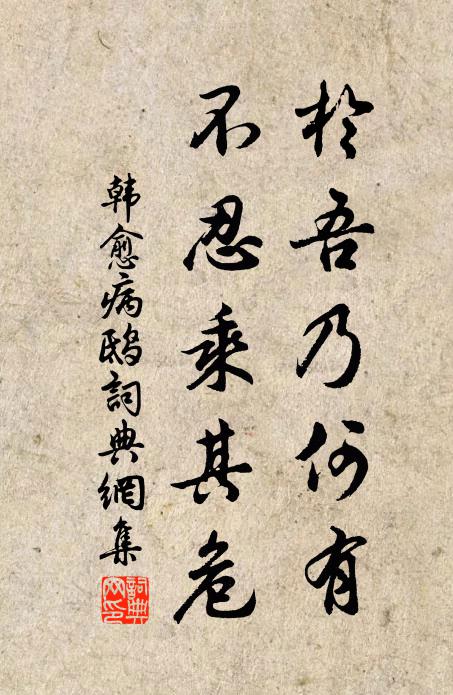 於吾乃何有
不忍乘其危
韩愈病鴟詞典網集
詞典網印